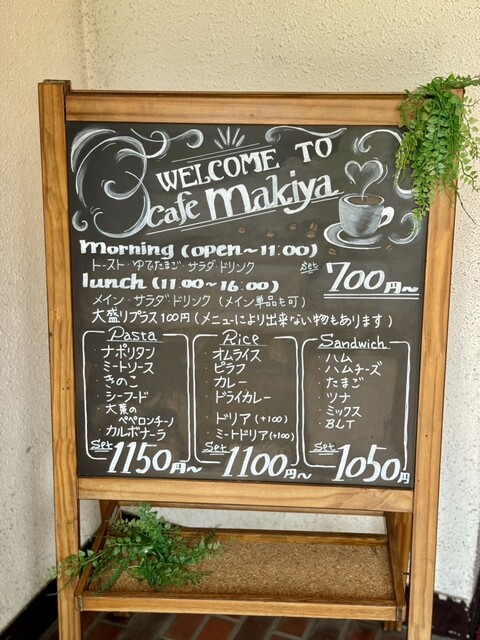 WELCOME TO
cafe makiya
morning (open~11:00)
トースト・ゆでたまご・サラダ・ドリンク set 700円~
lunch (11:00~16:00)
メイン・サラダ・ドリンク (メイン単品も可)
大盛りプラス100円 (メニューにより出来ない物もあります)
Pasta
・ナポリタン
・ミートソース
・きのこ
・シーフード
・大葉の
ペペロンチーノ
・カルボナーラ
set 1150円~
Rice
・オムライス
・ピラフ
・カレー
・ドライカレー
・ドリア (+100)
・ミートドリア (+100)
set 1100円~
Sandwich
・ハム
・ハムチーズ
・たまご
・ツナ
・ミックス
・BLT
set 1050円